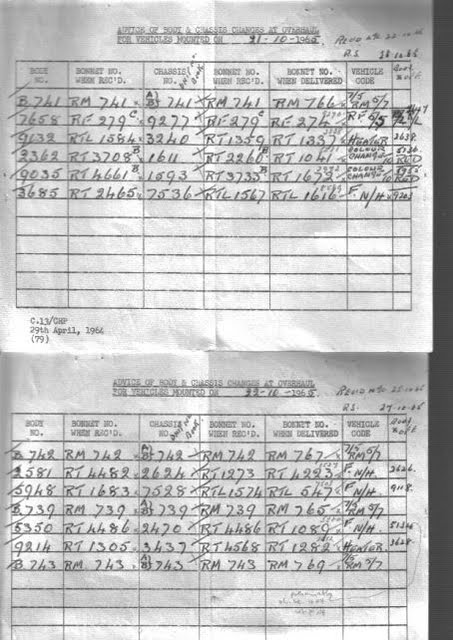 ADVICE OF BODY & CHASSIS CHANGES AT OVERHAUL
FOR VEHICLES MOUNTED ON 21-10-1965
BODY NO. BONNET NO. WHEN REC'D. CHASSIS NO. BONNET NO. WHEN REC'D. BONNET NO. WHEN DELIVERED VEHICLE CODE
B.741 RM 741 A) B) 741 RM 741 RM 766 7/5 RM 5/7
7658 RF 279 C 9277 RF 279 C RF 274
9132 RTL 1584 3240 RT 1359 RT 1337 HEATER 3638
2362 RT 3708 B 1611 RT 2260 B RT 1041 COLOUR CHANGE TO RED
9035 RT 4661 B 1593 RT 3735 B RT 1672 COLOUR CHANGE TO RED
3685 RT 2465 7536 RTL 1567 RTL 1616 F N/H 9203
C.13/CHP
29th April, 1964
(79)
ADVICE OF BODY & CHASSIS CHANGES AT OVERHAUL
FOR VEHICLES MOUNTED ON 22-10-1965
BODY NO. BONNET NO. WHEN REC'D. CHASSIS NO. BONNET NO. WHEN REC'D. BONNET NO. WHEN DELIVERED VEHICLE CODE
B.742 RM 742 A) B) 742 RM 742 RM 767 7/5 RM 5/7
1581 RT 4482 2624 RT 1273 RT 4223 F N/H 2626
5948 RT 1683 7528 RTL 1574 RTL 547 F N/H 9118
B.739 RM 739 A) B) 739 RM 739 RM 765 7/5 RM 5/7
5350 RT 4486 2470 RT 4486 RT 1089 F N/H
9214 RT 1305 3437 RT 4568 RT 1282 HEATER 3628
B.743 RM 743 A) B) 743 RM 743 RM 769 7/5 RM 5/7